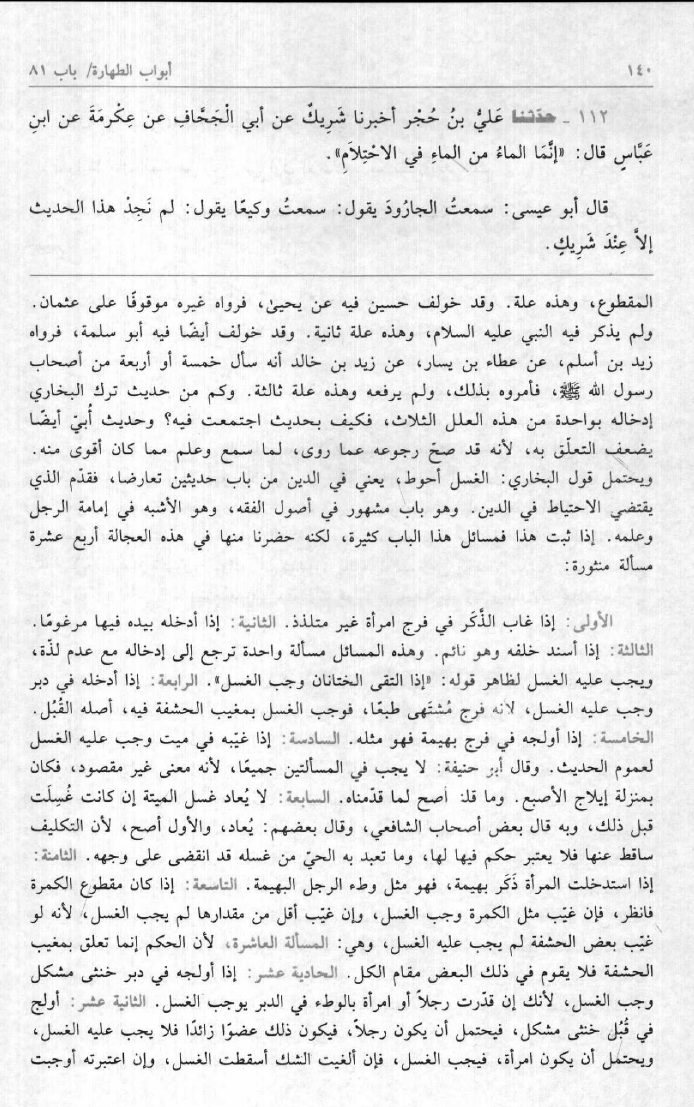 ١٤٠
أبواب الطهارة/ باب ٨١
١١٢ ـ حدّثنا عَليُّ بنُ حُجْر أخبرنا شَرِيكٌ عن أبي الْجَحَّافِ عن عِكْرمَةَ عن ابنِ
عَبَّاسٍ قال: «إنَّمَا الماءُ من الماءِ في الاحْتِلاَمِ».
قال أبو عيسى: سمعتُ الجارُودَ يقول: سمعتُ وكيعًا يقول: لم نَجِدْ هذا الحديث
إلاَّ عِنْدَ شَرِيكٍ.
المقطوع، وهذه علة. وقد خولف حسين فيه عن يحيىٰ، فرواه غيره موقوفًا على عثمان.
ولم يذكر فيه النبي عليه السلام، وهذه علة ثانية. وقد خولف أيضًا فيه أبو سلمة، فرواه
زيد بن أسلم، عن عطاء بن يسار، عن زيد بن خالد أنه سأل خمسة أو أربعة من أصحاب
رسول الله ﷺ، فأمروه بذلك، ولم يرفعه وهذه علة ثالثة. وكم من حديث ترك البخاري
إدخاله بواحدة من هذه العلل الثلاث، فكيف بحديث اجتمعت فيه؟ وحديث أُبيّ أيضًا
يضعف التعلّق به، لأنه قد صحّ رجوعه عما روى، لما سمع وعلم مما كان أقوى منه.
ويحتمل قول البخاري: الغسل أحوط، يعني في الدين من باب حديثين تعارضا، فقدّم الذي
يقتضي الاحتياط في الدين. وهو باب مشهور في أصول الفقه، وهو الأشبه في إمامة الرجل
وعلمه. إذا ثبت هذا فمسائل هذا الباب كثيرة، لكنه حضرنا منها في هذه العجالة أربع عشرة
مسألة منثورة:
الأولى: إذا غاب الذَّكَر في فرج امرأة غير متلذذ. الثانية: إذا أدخله بيده فيها مرغومًا.
الثالثة: إذا أسند خلفه وهو نائم. وهذه المسائل مسألة واحدة ترجع إلى إدخاله مع عدم لذّة،
ويجب عليه الغسل لظاهر قوله: «إذا التقى الختانان وجب الغسل». الرابعة: إذا أدخله في دبر
وجب عليه الغسل، لأنه فرج مُشتَهى طبعًا، فوجب الغسل بمغيب الحشفة فيه، أصله القُبُل.
الخامسة: إذا أولجه في فرج بهيمة فهو مثله. السادسة: إذا غيّبه في ميت وجب عليه الغسل
لعموم الحديث. وقال أبو حنيفة: لا يجب في المسألتين جميعًا، لأنه معنى غير مقصود، فكان
بمنزلة إيلاج الأصبع. وما قلنا أصح لما قدّمناه. السابعة: لا يُعاد غسل الميتة إن كانت غُسِلَت
قبل ذلك، وبه قال بعض أصحاب الشافعي، وقال بعضهم: يُعاد، والأول أصح، لأن التكليف
ساقط عنها فلا يعتبر حكم فيها لها، وما تعبد به الحيّ من غسله قد انقضى على وجهه. الثامنة:
إذا استدخلت المرأة ذَكَر بهيمة، فهو مثل وطء الرجل البهيمة. التاسعة: إذا كان مقطوع الكمرة
فانظر، فإن غيّب مثل الكمرة وجب الغسل، وإن غيّب أقل من مقدارها لم يجب الغسل، لأنه لو
غيّب بعض الحشفة لم يجب عليه الغسل، وهي: المسألة العاشرة، لأن الحكم إنما تعلق بمغيب
الحشفة فلا يقوم في ذلك البعض مقام الكل. الحادية عشر: إذا أولجه في دبر خنثى مشكل
وجب الغسل، لأنك إن قدّرت رجلاً أو امرأة بالوطء في الدبر يوجب الغسل. الثانية عشر: أولج
في قُبُل خنثى مشكل، فيحتمل أن يكون رجلاً، فيكون ذلك عضوًا زائدًا فلا يجب عليه الغسل،
ويحتمل أن يكون امرأة، فيجب الغسل، فإن ألغيت الشك أسقطت الغسل، وإن اعتبرته أوجبت